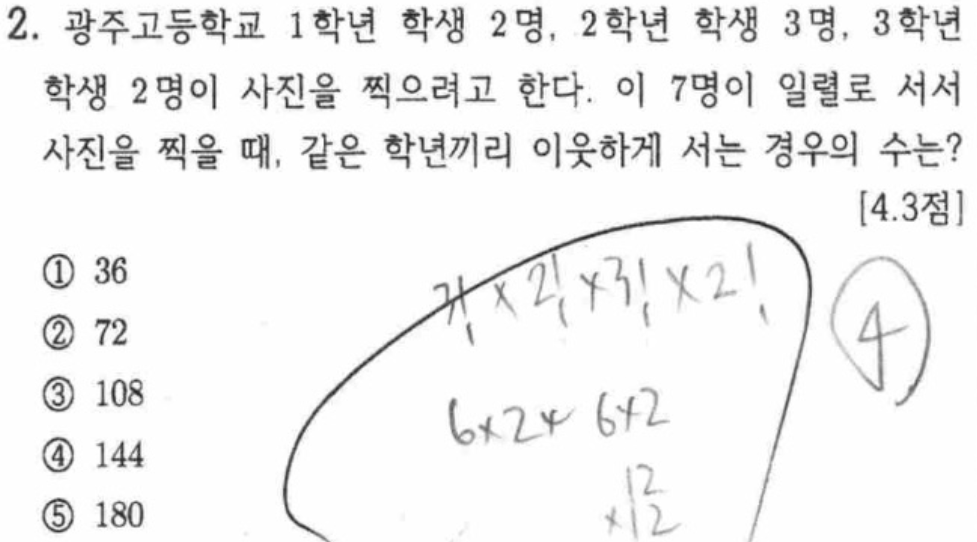 2. 광주고등학교 1학년 학생 2명, 2학년 학생 3명, 3학년
학생 2명이 사진을 찍으려고 한다. 이 7명이 일렬로 서서
사진을 찍을 때, 같은 학년끼리 이웃하게 서는 경우의 수는?
[4.3점]
① 36
② 72
③ 108
④ 144
⑤ 180
× 2! × 3! × 2!
4
6×2× 6×2
12
×12